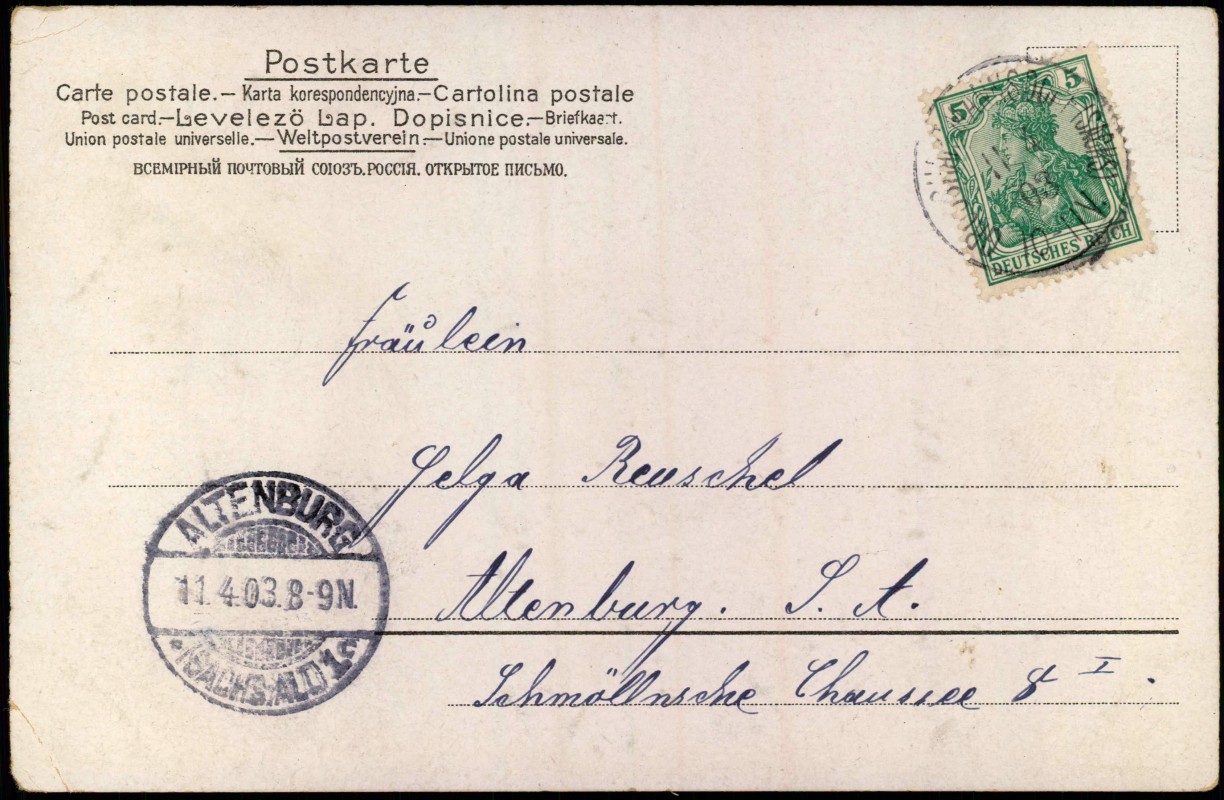 Postkarte
Carte postale.— Karta korespondencyjna.—Cartolina postale
Post card.—Levelező Lap. Dopisnice.—Briefkaart.
Union postale universelle.—Weltpostverein.—Unione postale universale.
ВСЕМІРНЫЙ ПОЧТОВЫЙ СОЮЗЪ. РОССІЯ. ОТКРЫТОЕ ПИСЬМО.
5 5
DEUTSCHES REICH
11 4 03
Fräulein
Helga Reuschel
Altenburg. S. A.
Schmöllnsche Chaussee 8 I.
ALTENBURG
11.4.03.8-9N.
(SACHS.ALT.) 1c